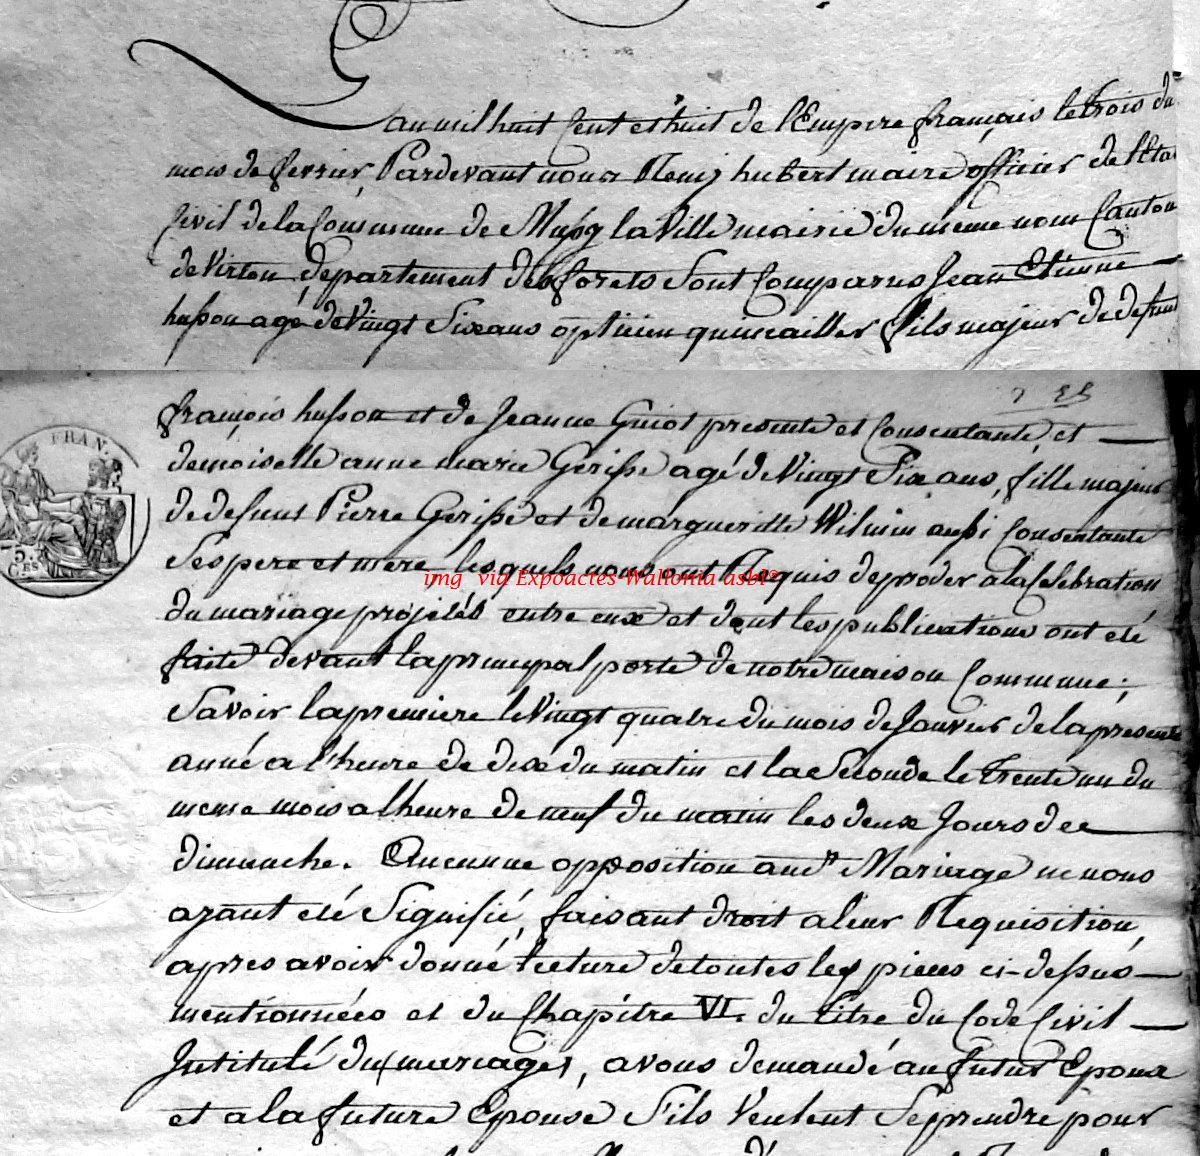 L'an mil huit Cent et huit de l'Empire français le trois du
mois de fevrier, Pardevant nous Remi hubert maire officier de l'Etat
Civil de la Commune de Mussy la Ville mairie du meme nom Canton
de Virton département des forets Sont Comparus Jean Etienne
husson agé de Vingt Six ans opticien quincailler fils majeur de defunt
françois husson et de Jeanne Guiot presente et Consentante, et
demoiselle anne marie Gerisse agé de Vingt Six ans, fille majeur
de defunt Pierre Gerisse et de margueritte Wilmin aussi Consentante
Ses pere et mere, lesquels nous ont Requis de proceder a la Celebration
img via Expoactes-Wallonia asbl°
du mariage projetés entre eux et dont les publications ont eté
faite devant la principal porte de notre maison Commune ;
Savoir la premiere le Vingt quatre du mois de Janvier de la presente
année a l'heure de dix du matin et la Seconde le trente un du
meme mois a l'heure de neuf du matin les deux Jours de
dimanche. Aucunne opposition aud.t Mariage ne nous
ayant eté Signifié, faisant droit a leur Requisition,
apres avoir donné lecture de toutes les pieces ci-dessus
mentionnées et du Chapitre VI. du titre du Code Civil
Intitulé du mariages, avons demandé au futur Epoux
et a la future Epouse S'ils Veulent Se prendre pour
FRAN.
75.
C.ES